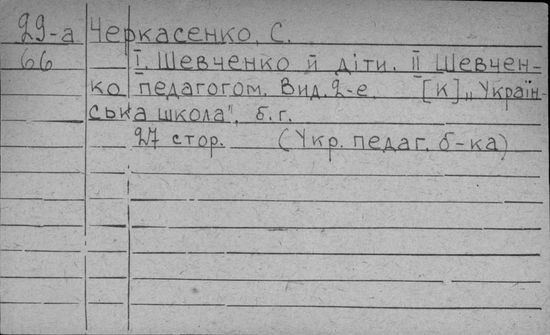 29-а Черкасенко, С.
66 І. Шевченко й діти. ІІ Шевчен-
ко педагогом. Вид. 2-е. [К] „Україн-
ська школа", б. г.
27 стор. (Укр. педаг. б-ка)